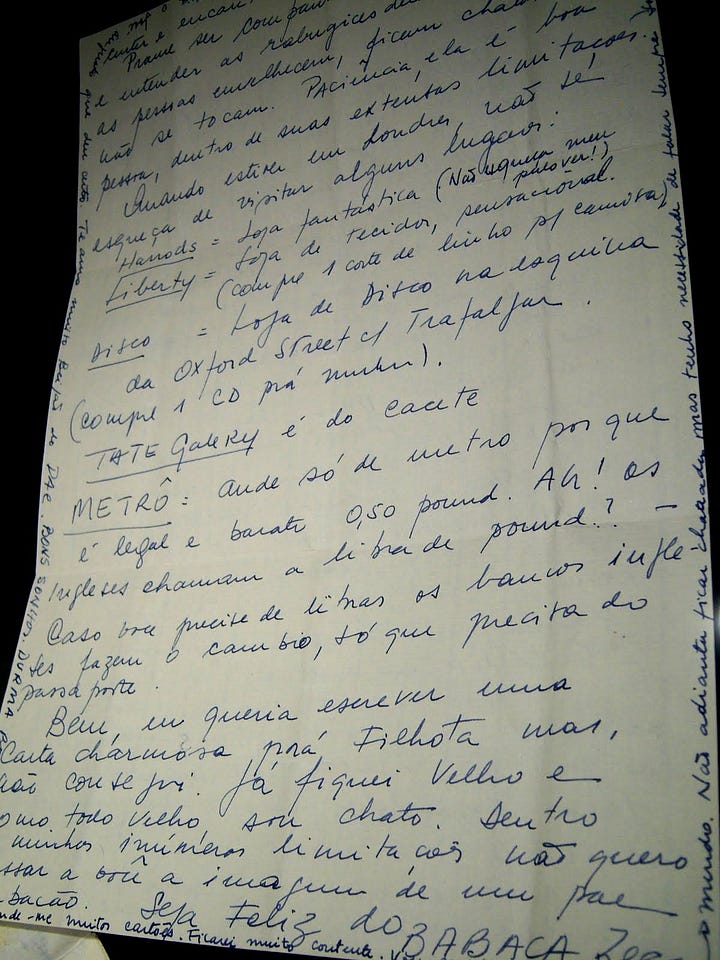 Prame ser com
e entender as rabugices de
as pessoas envelhecem, ficam chatas
não se tocam. PACiência, ela é boa
pessoa, dentro de suas extensas limitações.
Quando estiver em Londres, não se
esqueça de visitar alguns lugares:
Harrods = Loja fantástica (Não esqueça meu pulover!)
Liberty = Loja de tecidos, sensacional.
(compre 1 corte de linho p/ camisa)
Disco = Loja de Disco na esquina
da Oxford Street c/ Trafalgar.
(compre 1 CD prá mim).
TATE GaleRy é do cacete
METRÔ: ande só de metro por que
é legal e barato 0,50 pound. Ah! os
Ingleses chamam a libra de pound!? —
Caso voce precise de libras os bancos ingle
ses fazem o cambio, só que precisa do
passaporte.
Bem, eu queria escrever uma
Carta chármosa prá Filhota mas,
não consegui. Já fiquei Velho e
omo todo velho sou chato. Dentro
minhas inúmeras limitações não quero
ssar a você a imagem de um pae
bacão. Seja Feliz do BABACA
nde-me muitos cartões. Ficarei muito contente.
que deu certo Te amo muito Beijos do PAE. BONS SONHOS. DURMA
o mundo. Não adianta ficar chateada mas tenho necessidade de falar sempre